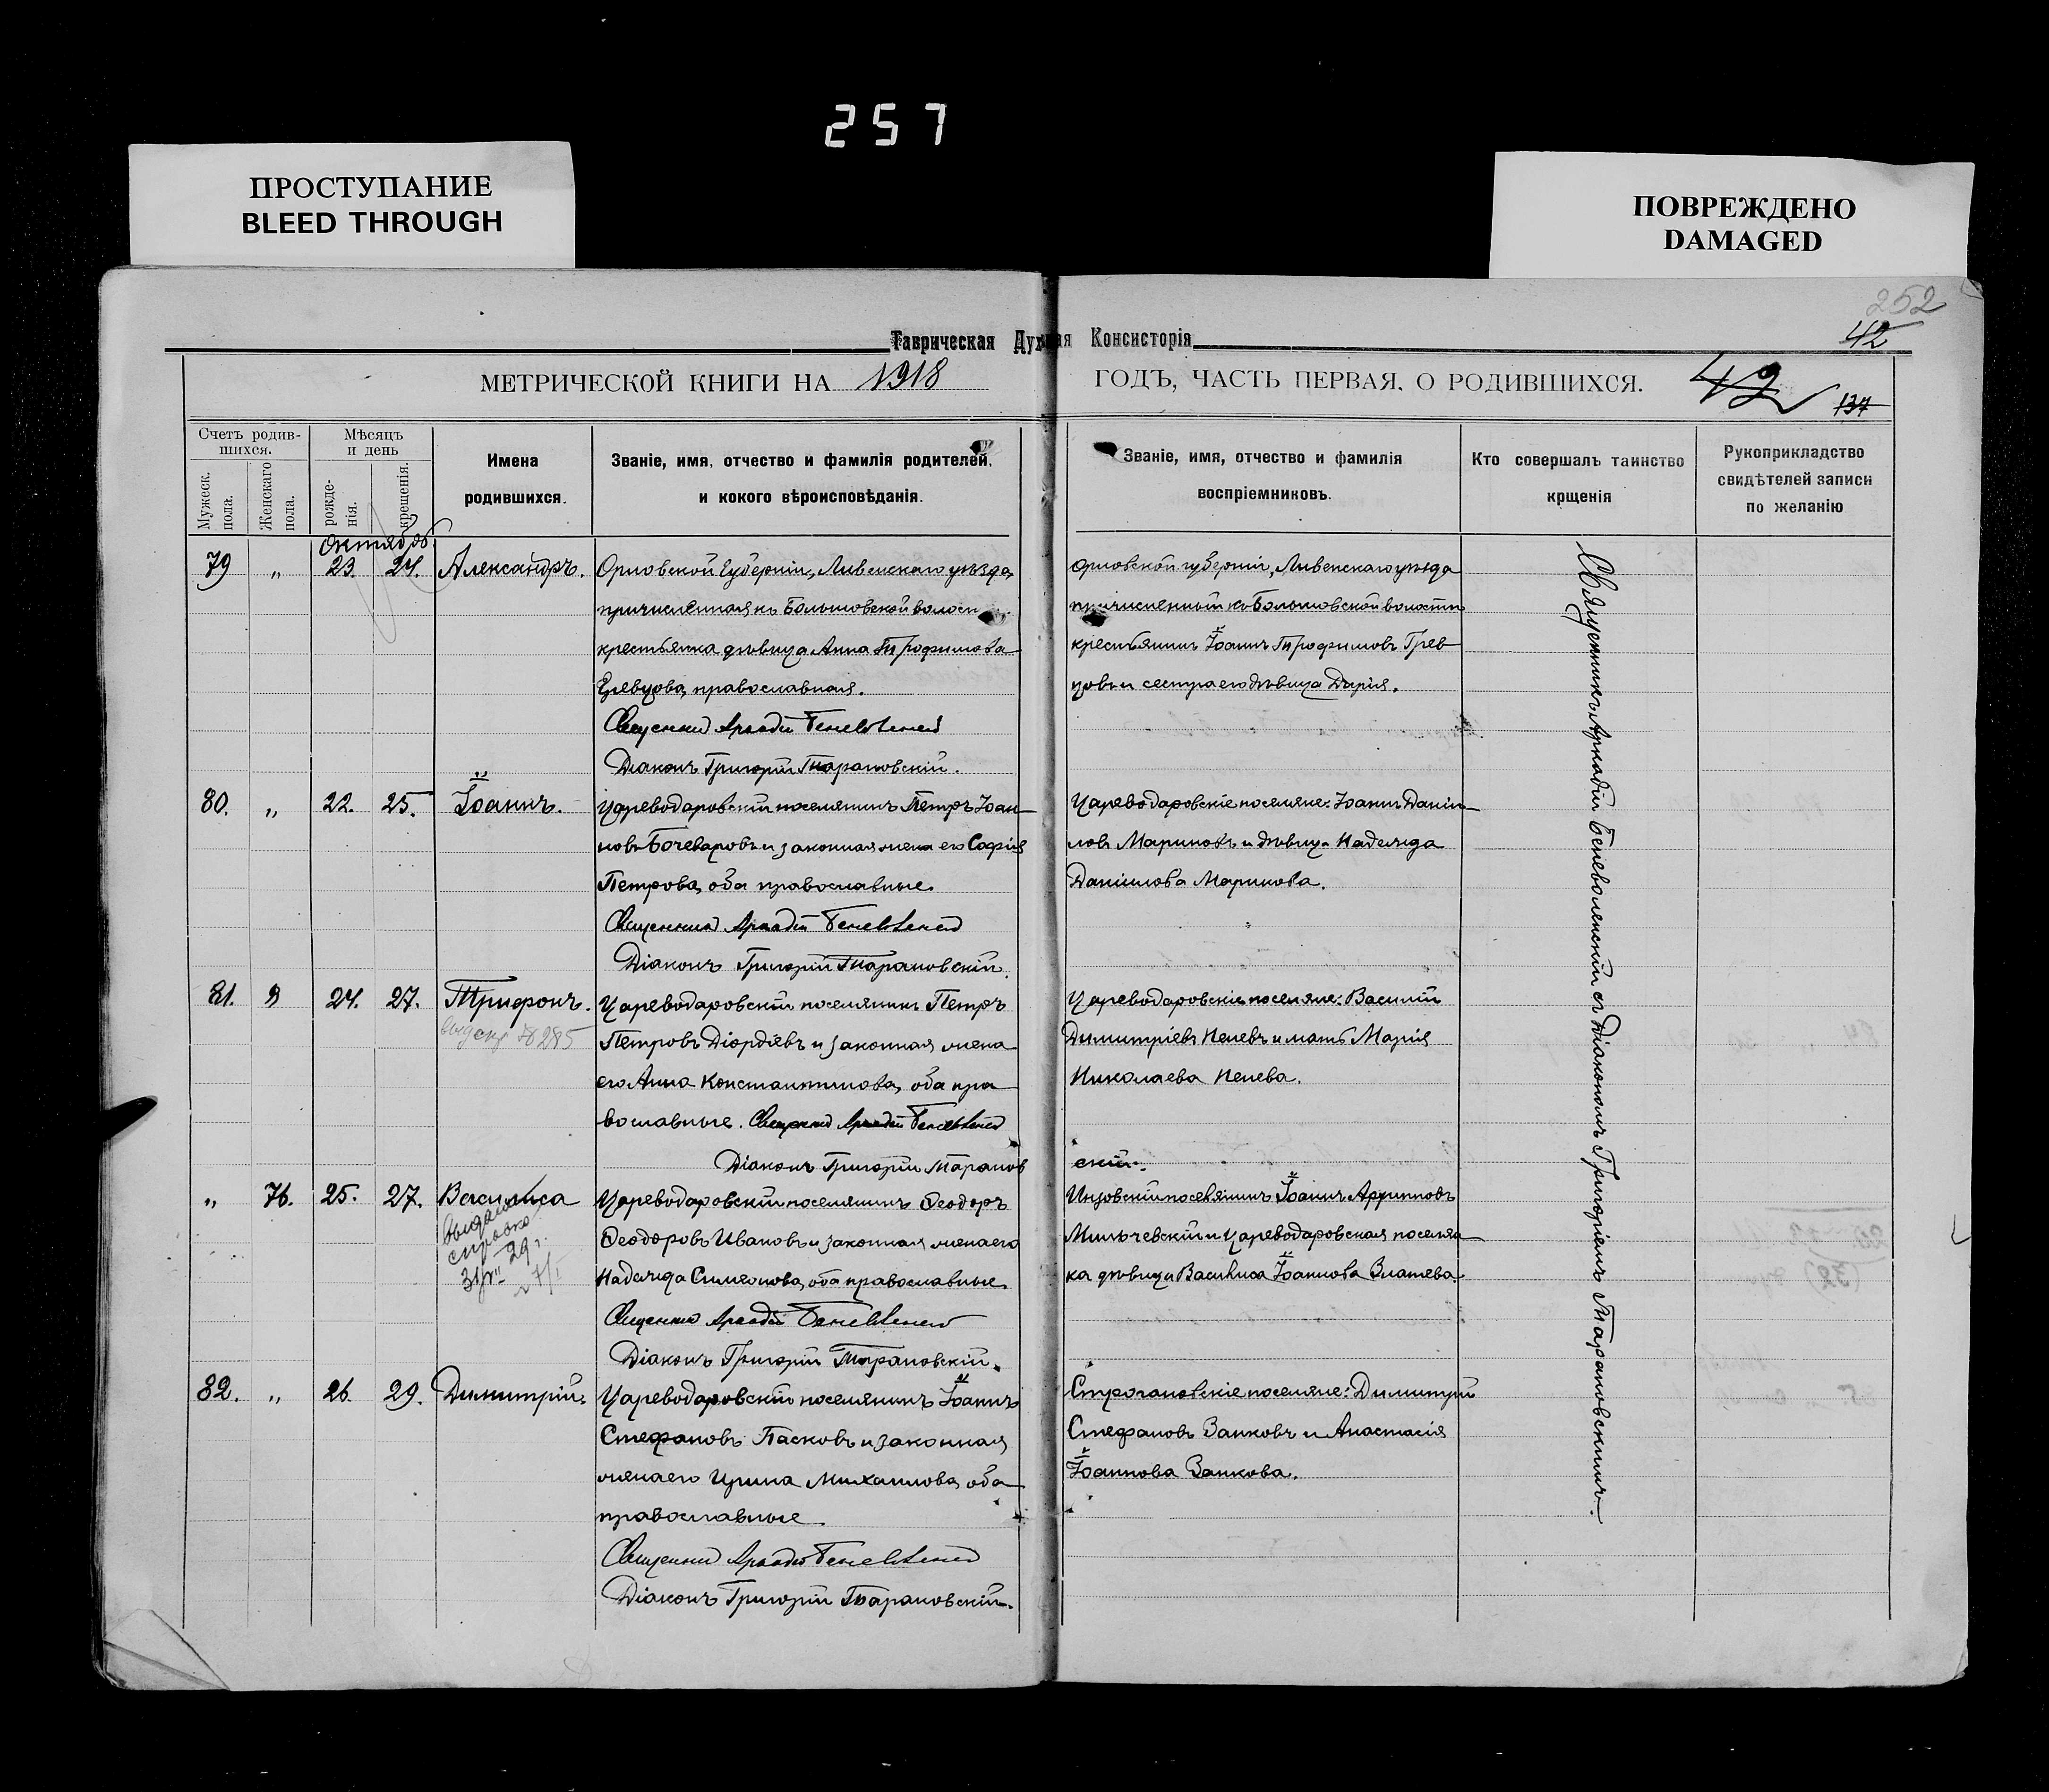 257
ПРОСТУПАНИЕ
BLEED THROUGH
ПОВРЕЖДЕНО
DAMAGED
252
42
Таврическая Духная Консисторія
МЕТРИЧЕСКОЙ КНИГИ НА 1918 ГОДЪ, ЧАСТЬ ПЕРВАЯ. О РОДИВШИХСЯ.
42
137
Счетъ родив-
шихся.
Мужеск.
пола.
Женскаго
пола.
Мѣсяцъ
и день
рожде-
нія.
крещенія.
Имена
родившихся.
Званіе, имя, отчество и фамилія родителей,
и кокого вѣроисповѣданія.
Званіе, имя, отчество и фамилія
воспріемниковъ.
Кто совершалъ таинство
крщенія
Рукоприкладство
свидѣтелей записи
по желанію
Октябрь
79 „ 23. 24. Александръ.
Орловской Губерніи, Ливенскаго уѣзда,
причисленная къ Большовской волости
крестьянка дѣвица Анна Трофимова
Гревцова, православная.
Священникъ Аркадій Беневоленскій
Діаконъ Григорій Тарановскій.
орловской губерніи, Ливенскаго уѣзда
причисленный къ Большовской волости
крестьянинъ Іоаннъ Трофимовъ Грев
цовъ и сестра его дѣвица Дарія.
80. „ 22. 25. Іоаннъ.
Цареводаровскій поселянинъ Петръ Іоан
новъ Бочеваровъ и законная жена его Софія
Петрова, оба православные.
Священникъ Аркадій Беневоленскій
Діаконъ Григорій Тарановскій.
Цареводаровскіе поселяне: Іоаннъ Даніи
ловъ Мариновъ и дѣвица Надежда
Даніилова Маринова.
81. „ 24. 27. Трифонъ.
№ 285
Цареводаровскій поселянинъ Петръ
Петровъ Діордіевъ и законная жена
его Анна Константинова, оба пра
вославные. Священникъ Аркадій Беневоленскій
Діаконъ Григорій Таранов
скій.
Цареводаровскіе поселяне: Василій
Димитріевъ Пеневъ и мать Марія
Николаева Пенева.
„ 76. 25. 27. Василиса
Выдана
справка
29 г.
Цареводаровскій поселянинъ Ѳеодоръ
Ѳеодоровъ Ивановъ и законная жена его
Надежда Симеонова, оба православные.
Священникъ Аркадій Беневоленскій
Діаконъ Григорій Тарановскій.
Инзовскій поселянинъ Іоаннъ Архиповъ
Мильчевскій и Цареводаровская поселян
ка дѣвица Василиса Іоаннова Златева.
82. „ 26. 29. Димитрій.
Цареводаровскій поселянинъ Іоаннъ
Стефановъ Пасковъ и законная
жена его Ирина Михаилова, оба
православные.
Священникъ Аркадій Беневоленскій
Діаконъ Григорій Тарановскій.
Строгановскіе поселяне: Димитрій
Стефановъ Занковъ и Анастасія
Іоаннова Занкова.
Священникъ Аркадій Беневоленскій съ діакономъ Григоріемъ Тарановскимъ.